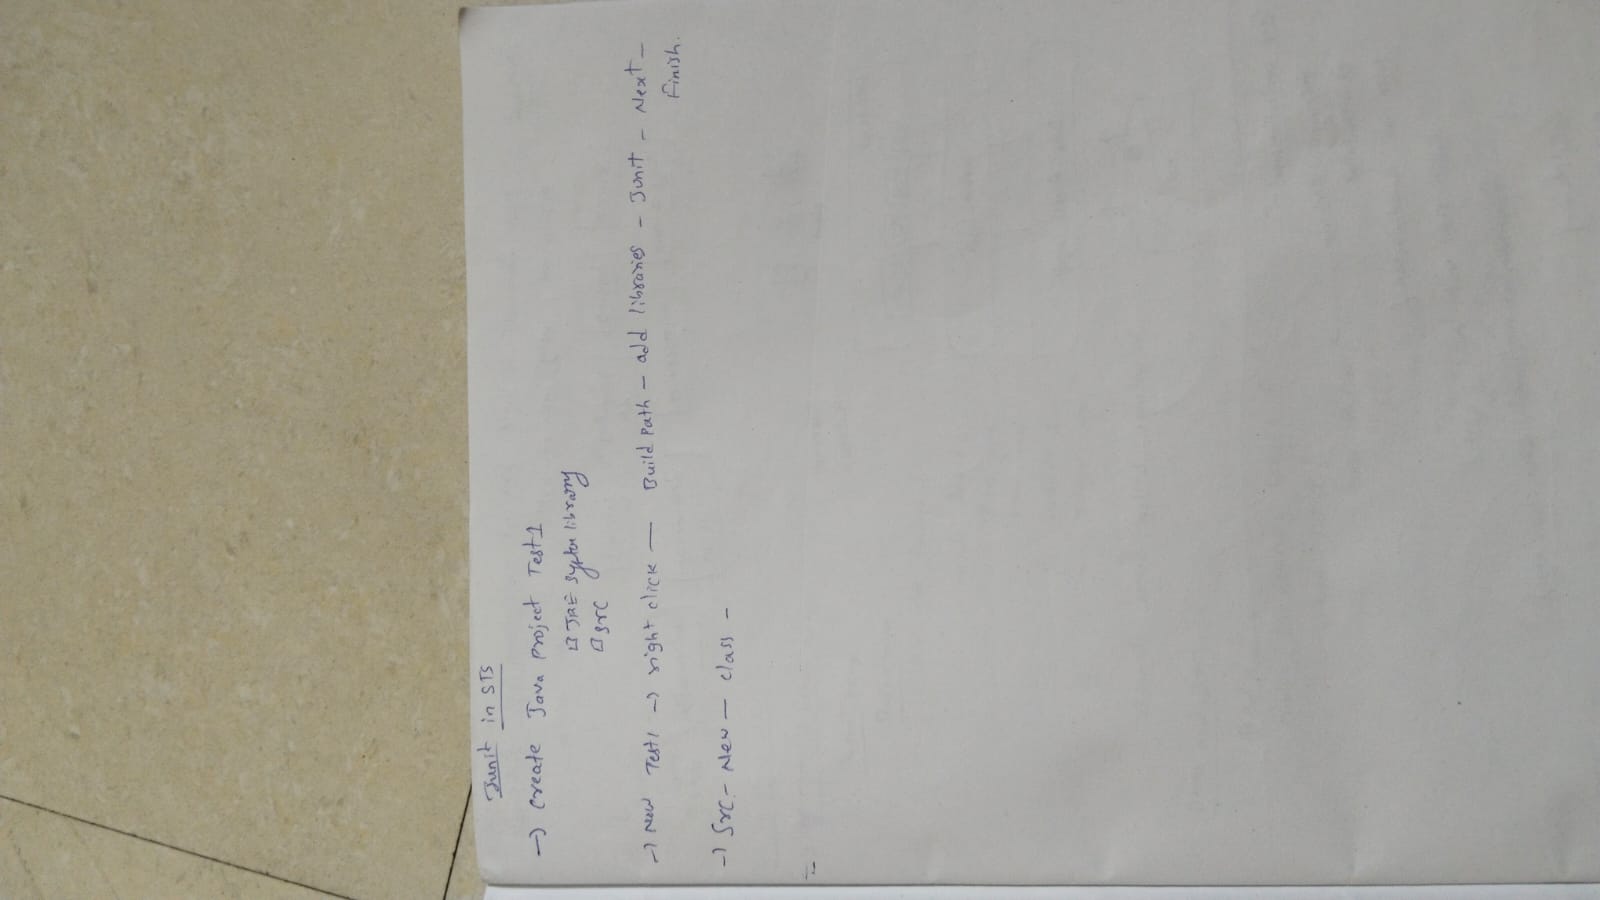 Junit in STS
→ Create Java project Test1
JRE System library
src
→ Now Test1 → right click — Build path — add libraries - Junit - Next -
Finish.
→ Src - New — class -